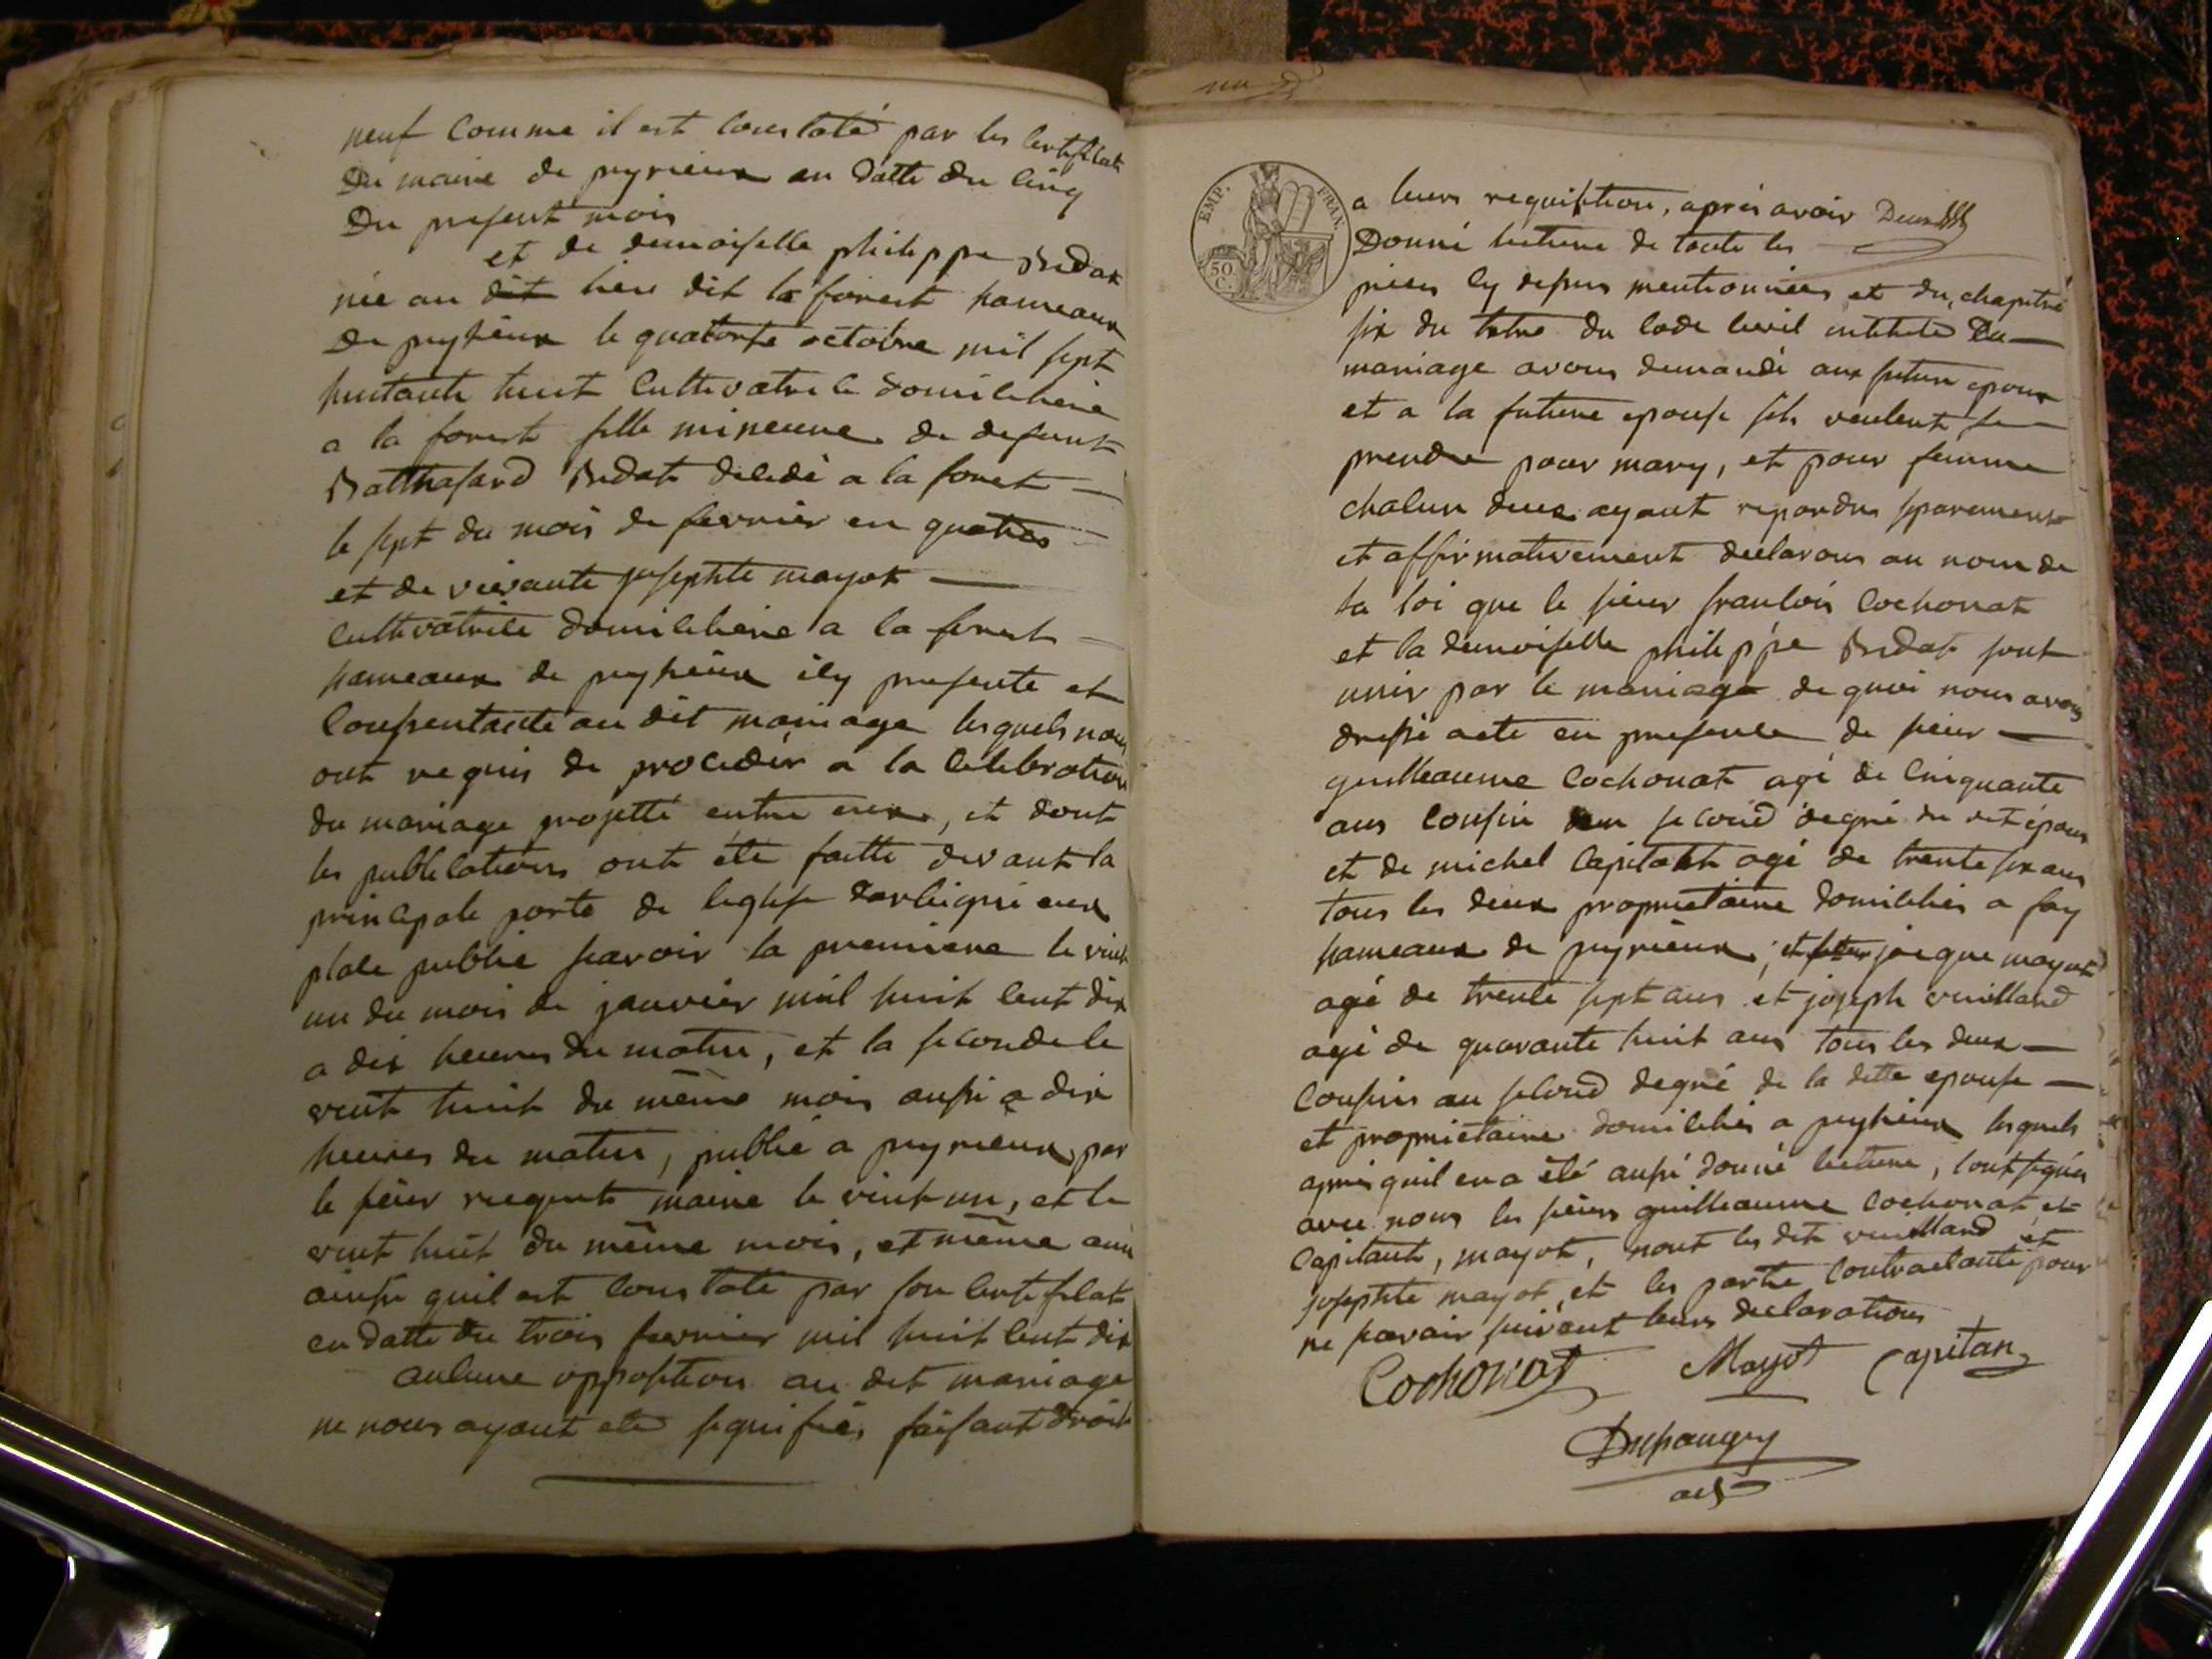 neuf comme il est constaté par les certificats
Du maire de peyrieux en datte du cinq
Du present mois
et de demoiselle philippe Bidat
née au dit lieu dit la forest hameaux
De peyrieux le quatorse octobre mil sept
huitante huit cultivatrice domiciliene
a la forest fille mineure de defunt
Balthasard Bidat décedé a la forest
le sept du mois de fevrier en quatres
et de vivante josephte mayot
cultivatrice domiciliene a la forest
hameaux de peyrieux icy presente et
consentante au dit mariage lesquels nous
ont requis de proceder a la celebration
du mariage projetté entre eux, et dont
les publications ont été faitte devant la
principale porte de leglise darbignieux
place public savoir la premiere le vint
un du mois de janvier mil huit cent dix
a dix heures du matin, et la seconde le
vint huit du même mois aussi a dix
heures du matin, publié a peyrieux par
le sieur maire le vint un, et le
vint huit du même mois, et même année
ainsi quil est constaté par son certificat
en datte du trois fevrier mil huit cent dix
aucune opposition au dit mariage
ne nous ayant eté signifiés, faisant droit
EMP. FRAN.
50 C.
a leurs requisition, apres avoir
Donné lecture de toute les
pieces cy dessus mentionnées et du chapitre
six du titre du code civil intitulé Du
mariage avons demandé aux futur epoux
et a la future epouse sils veulent se
prendre pour mary, et pour femme
chacun deux ayant repondus separement
et affirmativement declarons au nom de
la loi que le sieur francois Cochonat
et la demoiselle philippe Bidat sont
unis par le mariage de quoi nous avons
dressé acte en presence de sieur
guilleaume Cochonat agé de cinquante
ans cousin au second degré du dit époux
et de michel Capitant agé de trente six ans
tous les deux proprietaire domiciliés a fay
hameaux de peyrieux, et jacque mayot
agé de trente sept ans et joseph vuilland
agé de quarante huit ans tous les deux
cousins au second degré de la ditte epouse
et proprietaire domiciliés a peyrieux lesquels
apres quil en a été aussi donné lecture, lont signés
avec nous les sieurs guilleaume Cochonat, et
Capitant, mayot, nont les dit vuilland et
josephte mayot et les partie contractante pour
ne savoir suivant leurs declarations
Cochonat Mayot Capitan